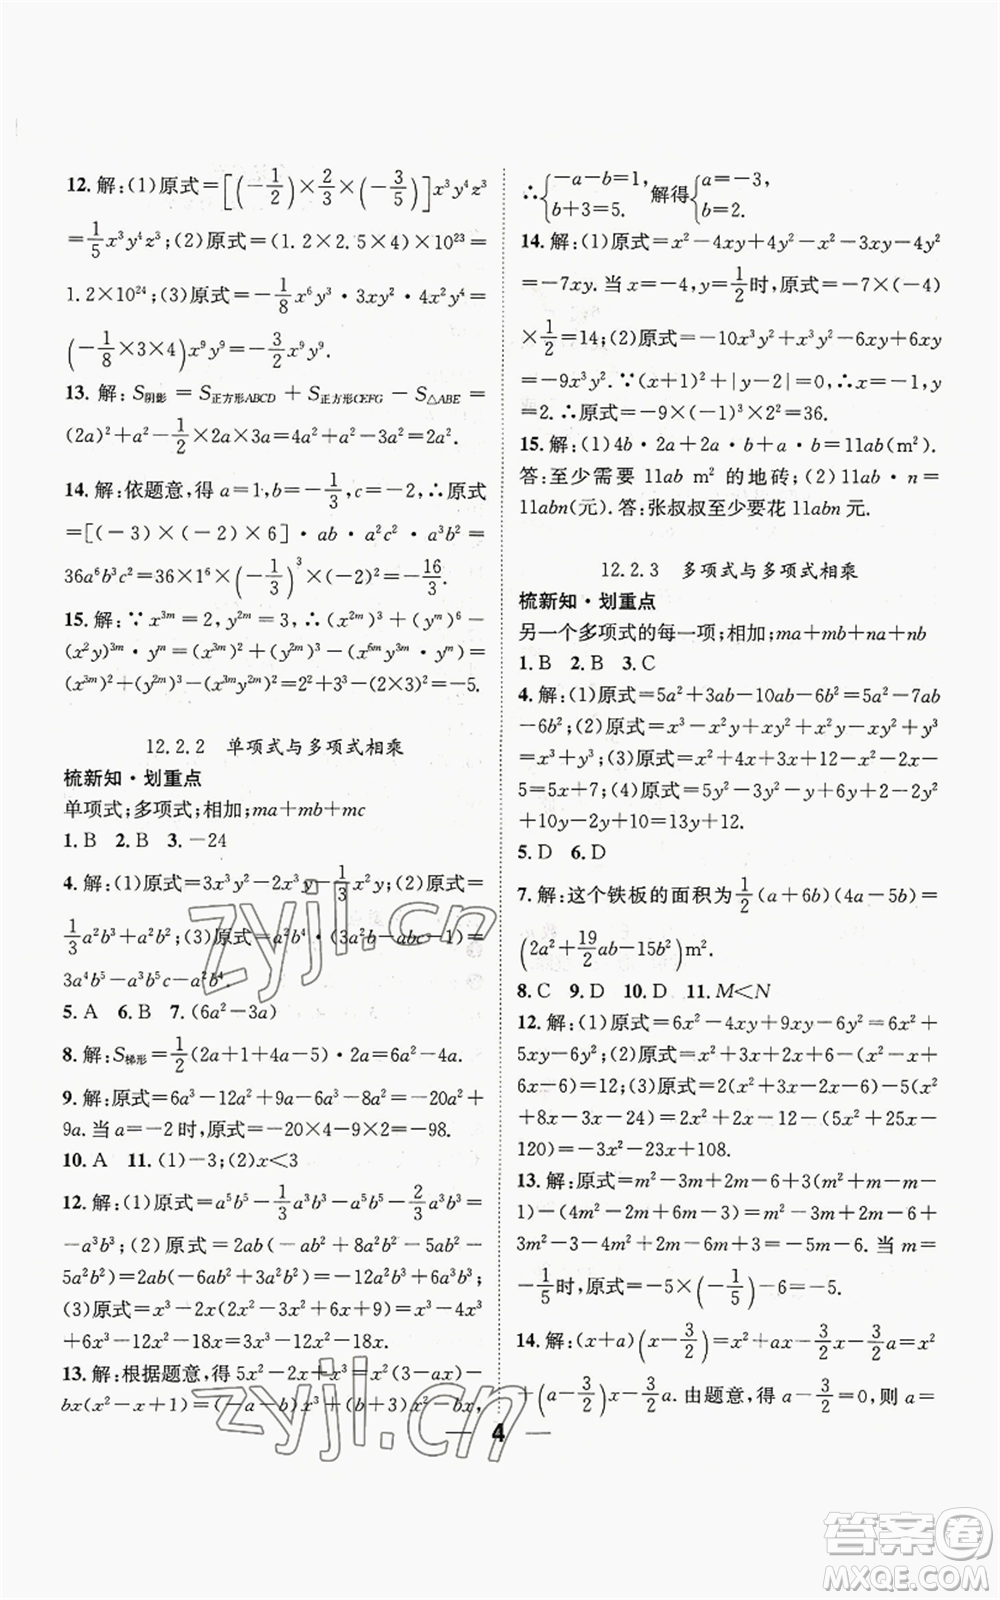 12.解:(1)原式=[(-1/2)×2/3×(-3/5)]x³y⁴z³
=1/5x³y⁴z³;(2)原式=(1.2×2.5×4)×10²³=
1.2×10²⁴;(3)原式=-1/8x⁶y³·3xy²·4x²y⁴=
(-1/8×3×4)x⁹y⁹=-3/2x⁹y⁹.
13.解:S阴影=S正方形ABCD+S正方形CEFG-S△ABE=
(2a)²+a²-1/2×2a×3a=4a²+a²-3a²=2a².
14.解:依题意,得a=1,b=-1/3,c=-2,∴原式
=[(-3)×(-2)×6]·ab·a²c²·a³b²=
36a⁶b³c²=36×1⁶×(-1/3)³×(-2)²=-16/3.
15.解:∵x³ᵐ=2,yᵐ=3,∴(x²ᵐ)³+(yᵐ)⁶-
(x²y)³ᵐ·yᵐ=(x³ᵐ)²+(yᵐ)⁶-(x⁶ᵐy³ᵐ·yᵐ)=
(x³ᵐ)²+(yᵐ)⁶-(x³ᵐy²ᵐ)²=2²+3⁶-(2×3²)²=-5.
12.2.2 单项式与多项式相乘
梳新知·划重点
单项式;多项式;相加;ma+mb+mc
1.B 2.B 3.-24
4.解:(1)原式=3x³y²-2x³y-1/3x²y;(2)原式=
1/3a²b³+a²b²;(3)原式=a²b⁴·(3a²b-abc-1)=
3a⁴b⁵-a³b⁵c-a²b⁴.
5.A 6.B 7.(6a²-3a)
8.解:S梯形=1/2(2a+1+4a-5)·2a=6a²-4a.
9.解:原式=6a³-12a²+9a-6a³-8a²=-20a²+
9a.当a=-2时,原式=-20×4-9×2=-98.
10.A 11.(1)-3;(2)x<3
12.解:(1)原式=a⁵b⁵-1/3a³b³-2/3a³b³=
-a³b³;(2)原式=2ab(-ab+ab²)-5ab²+
2a²b=2ab(-5ab²+2a²b)=-10a²b³+4a³b²;
(3)原式=x³-2x(2x²-3x²+6x+9)=-4x³
+6x³-12x²-18x=3x³-12x²-18x.
13.解:根据题意,得5x²-2x+x³=x²(3-ax)-
bx(x²-x+1)=(-a-b)x³+(3+b)x²-bx,
∴{-a-b=1, b+3=5. 解得{a=-3, b=2.
14.解:(1)原式=x²-4xy+4y²-x²-3xy-4y²
=-7xy.当x=-4,y=1/2时,原式=-7×(-4)
×1/2=14;(2)原式=-12x²y²-6xy+6xy+3x²y²
=-9x²y².∵(x+1)²+|y-2|=0,∴x=-1,y
=2.∴原式=-9×(-1)²×2²=36.
15.解:(1)4b·2a+2a·b+a·b=11ab(m²).
答:至少需要11ab m²的地砖;(2)11ab·n=
11abn(元).答:张叔叔至少要花11abn元.
12.2.3 多项式与多项式相乘
梳新知·划重点
另一个多项式的每一项;相加;ma+mb+na+nb
1.B 2.B 3.C
4.解:(1)原式=5a²+3ab-10ab-6b²=5a²-7ab
-6b²;(2)原式=x³-x²y+xy²+x²y-xy²+y³
=x³+y³;(3)原式=x²-2x-x+2+3x²+9x-
x-3=4x²+5x-1;(4)原式=x²-7x-18-x²+
1=-7x-17;(5)原式=5y²-(3y²-6y+y-2)
-2(y²-5y+y-5)=5y²-3y²+6y-y+2-2y²
+10y-2y+10=13y+12.
5.D 6.D
7.解:这个铁板的面积为1/2(a+6b)(4a-5b)=
(2a²+19/2ab-15b²)m².
8.C 9.D 10.D 11.M<N
12.解:(1)原式=6x²-4xy+9xy-6y²=6x²+
5xy-6y²;(2)原式=x²+3x+2x+6-(x²-x+
6x-6)=12;(3)原式=2(x²+2x-6)-5(x²
+8x-3x-24)=2x²+2x-12-(5x²+25x-
120)=-3x²-23x+108.
13.解:原式=m²-3m+2m-6+3(m²+m-m-
1)-(4m²-1)=m²-m-6+3m²+3m-
3-4m²+1=-5m-6.当m=
-1/5时,原式=-5×(-1/5)-6=-5.
14.解:(x+a)(x-3/2)=x²+ax-3/2x-3/2a=x²
+(a-3/2)x-3/2a.由题意,得a-3/2=0,则a=
4
zyjl.cn
zyjl.cn
答案卷
MXQE.COM